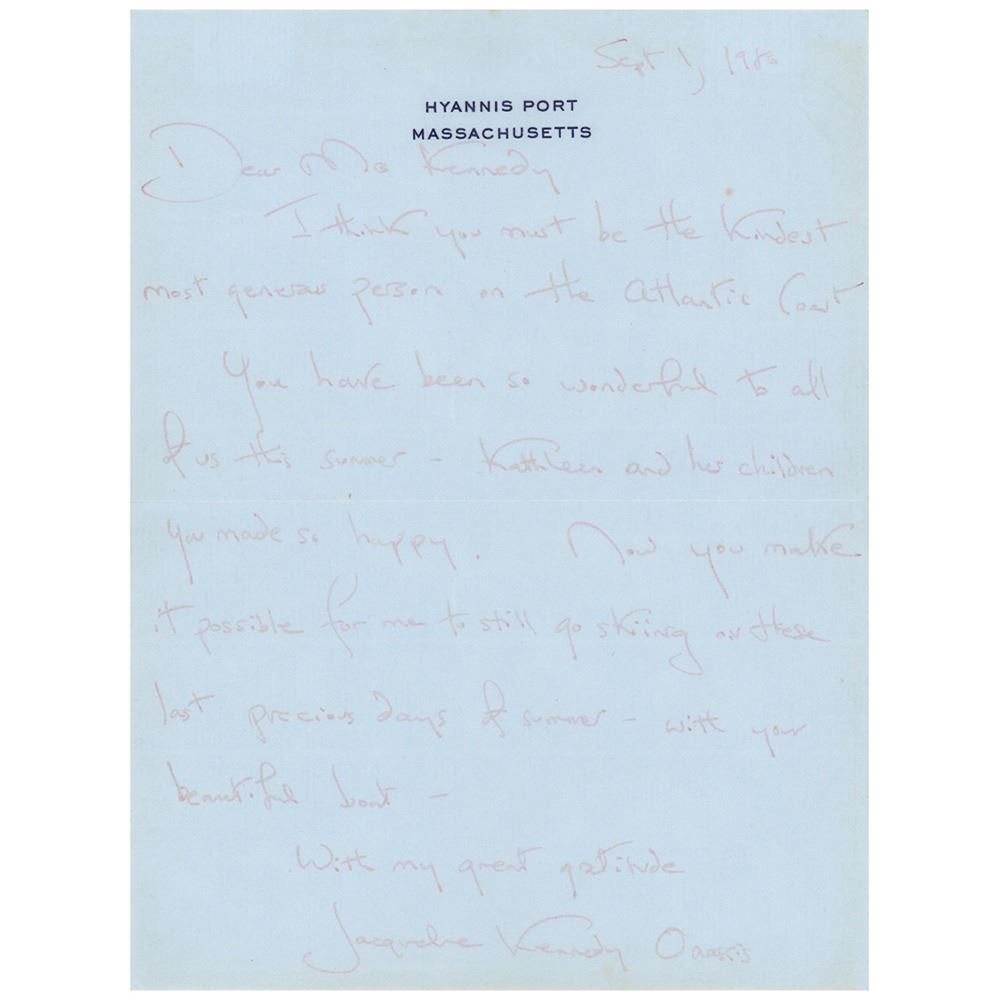 Sept 1, 1980
HYANNIS PORT
MASSACHUSETTS
Dear Mr Kennedy
I think you must be the kindest
most generous person on the Atlantic Coast
You have been so wonderful to all
of us this summer - Kathleen and her children
you made so happy. Now you make
it possible for me to still go skiing on these
last precious days of summer - with your
beautiful boat -
With my great gratitude
Jacqueline Kennedy Onassis